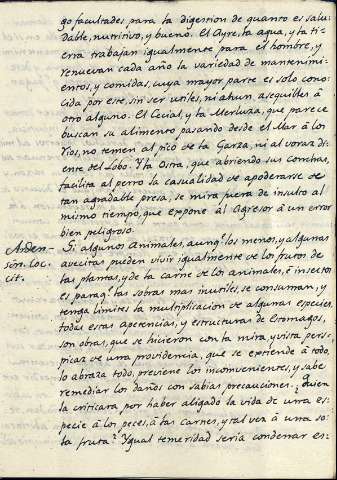 go facultades para la digestion de quanto es salu-
dable, nutritivo, y bueno. El Ayre, la agua, y la ti-
erra trabajan igualmente para el hombre, y
renuevan cada año la variedad de mantenimi-
entos, y comidas, cuya mayor parte es solo cono-
cida por este, sin ser utiles, ni ahun asequibles à
otro alguno. El Cecial, y la Merluza, que parece
buscan su alimento pasando desde el Mar à los
rios, no temen al pico de la Garza, ni al voraz di-
ente del Lobo. Y la Ostra, que abriendo sus conchas,
facilita al perro la casualidad de apoderarse de
tan agradable presa, se mira fuera de insulto al
mismo tiempo, que expone al Agresor à un error
bien peligroso.
Si algunos Animales, aunq.e los menos, y algunas
avecitas pueden vivir igualmente de los frutos de
las plantas, y de la carne de los animales, è insectos
es paraq.e las sobras mas inutiles, se consuman, y
tenga limites la multiplicacion de algunas especies,
todas estas apetencias, y estructuras de Estomagos,
son obras, que se hicieron con la mira, y vista pers-
picaz de una providencia, que se extiende à todo,
lo abraza todo, previene los inconvenientes, y sabe
remediar los daños con sabias precauciones. ¿Quien
la criticara por haber aligado la vida de una es-
pecie à los peces, à las carnes, y tal vez à una so-
la fruta? Ygual temeridad seria condenar en-
loc.
cit.